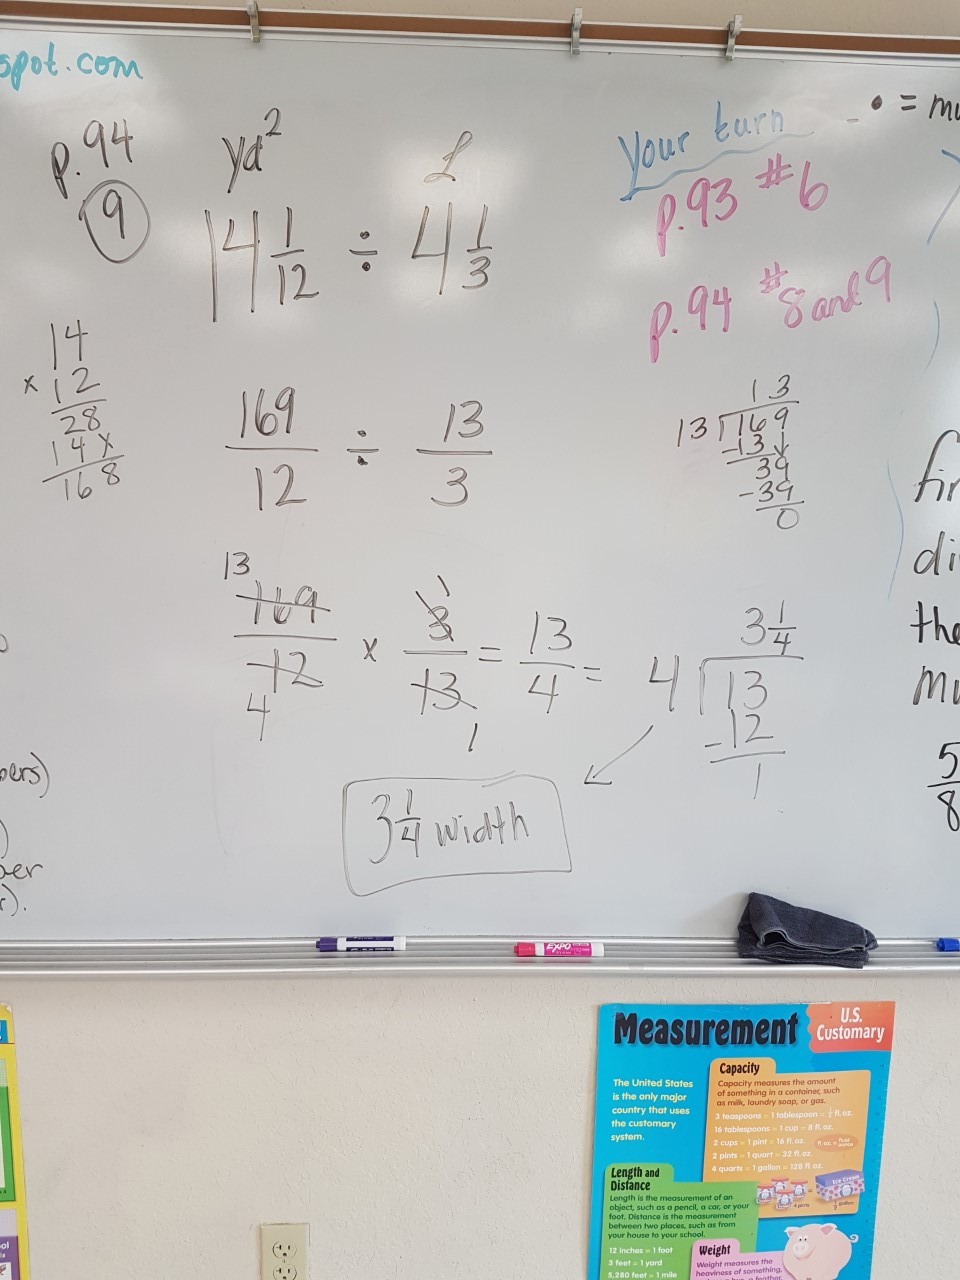 spot.com
p.94
9
yd²
L
14 1/12 ÷ 4 1/3
14
x 12
28
14x
168
169/12 ÷ 13/3
13
169/12 x 3/13 = 13/4 =
1
4
1
3 1/4 width
Your turn
p.93 #6
p.94 #8 and 9
13
13 169
-13↓
39
-39
0
3 1/4
4 13
-12
1
• = mu
fir
di
the
mu
5/8
bers)
)
ber
r).
EXPO
Measurement
U.S. Customary
The United States
is the only major
country that uses
the customary
system.
Capacity
Capacity measures the amount
of something in a container, such
as milk, laundry soap, or gas.
3 teaspoons = 1 tablespoon = ½ fl. oz.
16 tablespoons = 1 cup = 8 fl. oz.
2 cups = 1 pint = 16 fl. oz.
fl. oz. = fluid ounce
2 pints = 1 quart = 32 fl. oz.
4 quarts = 1 gallon = 128 fl. oz.
Ice Cream
4 pints
½ gallon
Length and
Distance
Length is the measurement of an
object, such as a pencil, a car, or your
foot. Distance is the measurement
between two places, such as from
your house to your school.
12 inches = 1 foot
3 feet = 1 yard
5,280 feet = 1 mile
Weight
Weight measures the
heaviness of something,